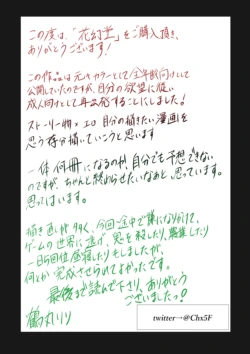 この度は、「花幻堂」をご購入頂き、
ありがとうございます!
この作品は元々カラーとして全年齢向けとして
公開していたのですが、自分の欲望に従い
成人向けとして再出発することにしました!
ストーリー物×エロ 自分の描きたい漫画を
思う存分描いていこうと思います
一体何冊になるのか、自分でも予想できない
のですが、ちゃんと終わらせたいなあと、思っています。
思ってはいます。
描き直しが多く、今回途中で嫌になりかけて、
ゲームの世界に逃げ、
一日5回位昼寝したりもしましたが、
何とか完成させられてよかったです。
最後まで読んで下さり、ありがとう
ございましたっ!
鶴丸リリ
twitter→@Chx5F